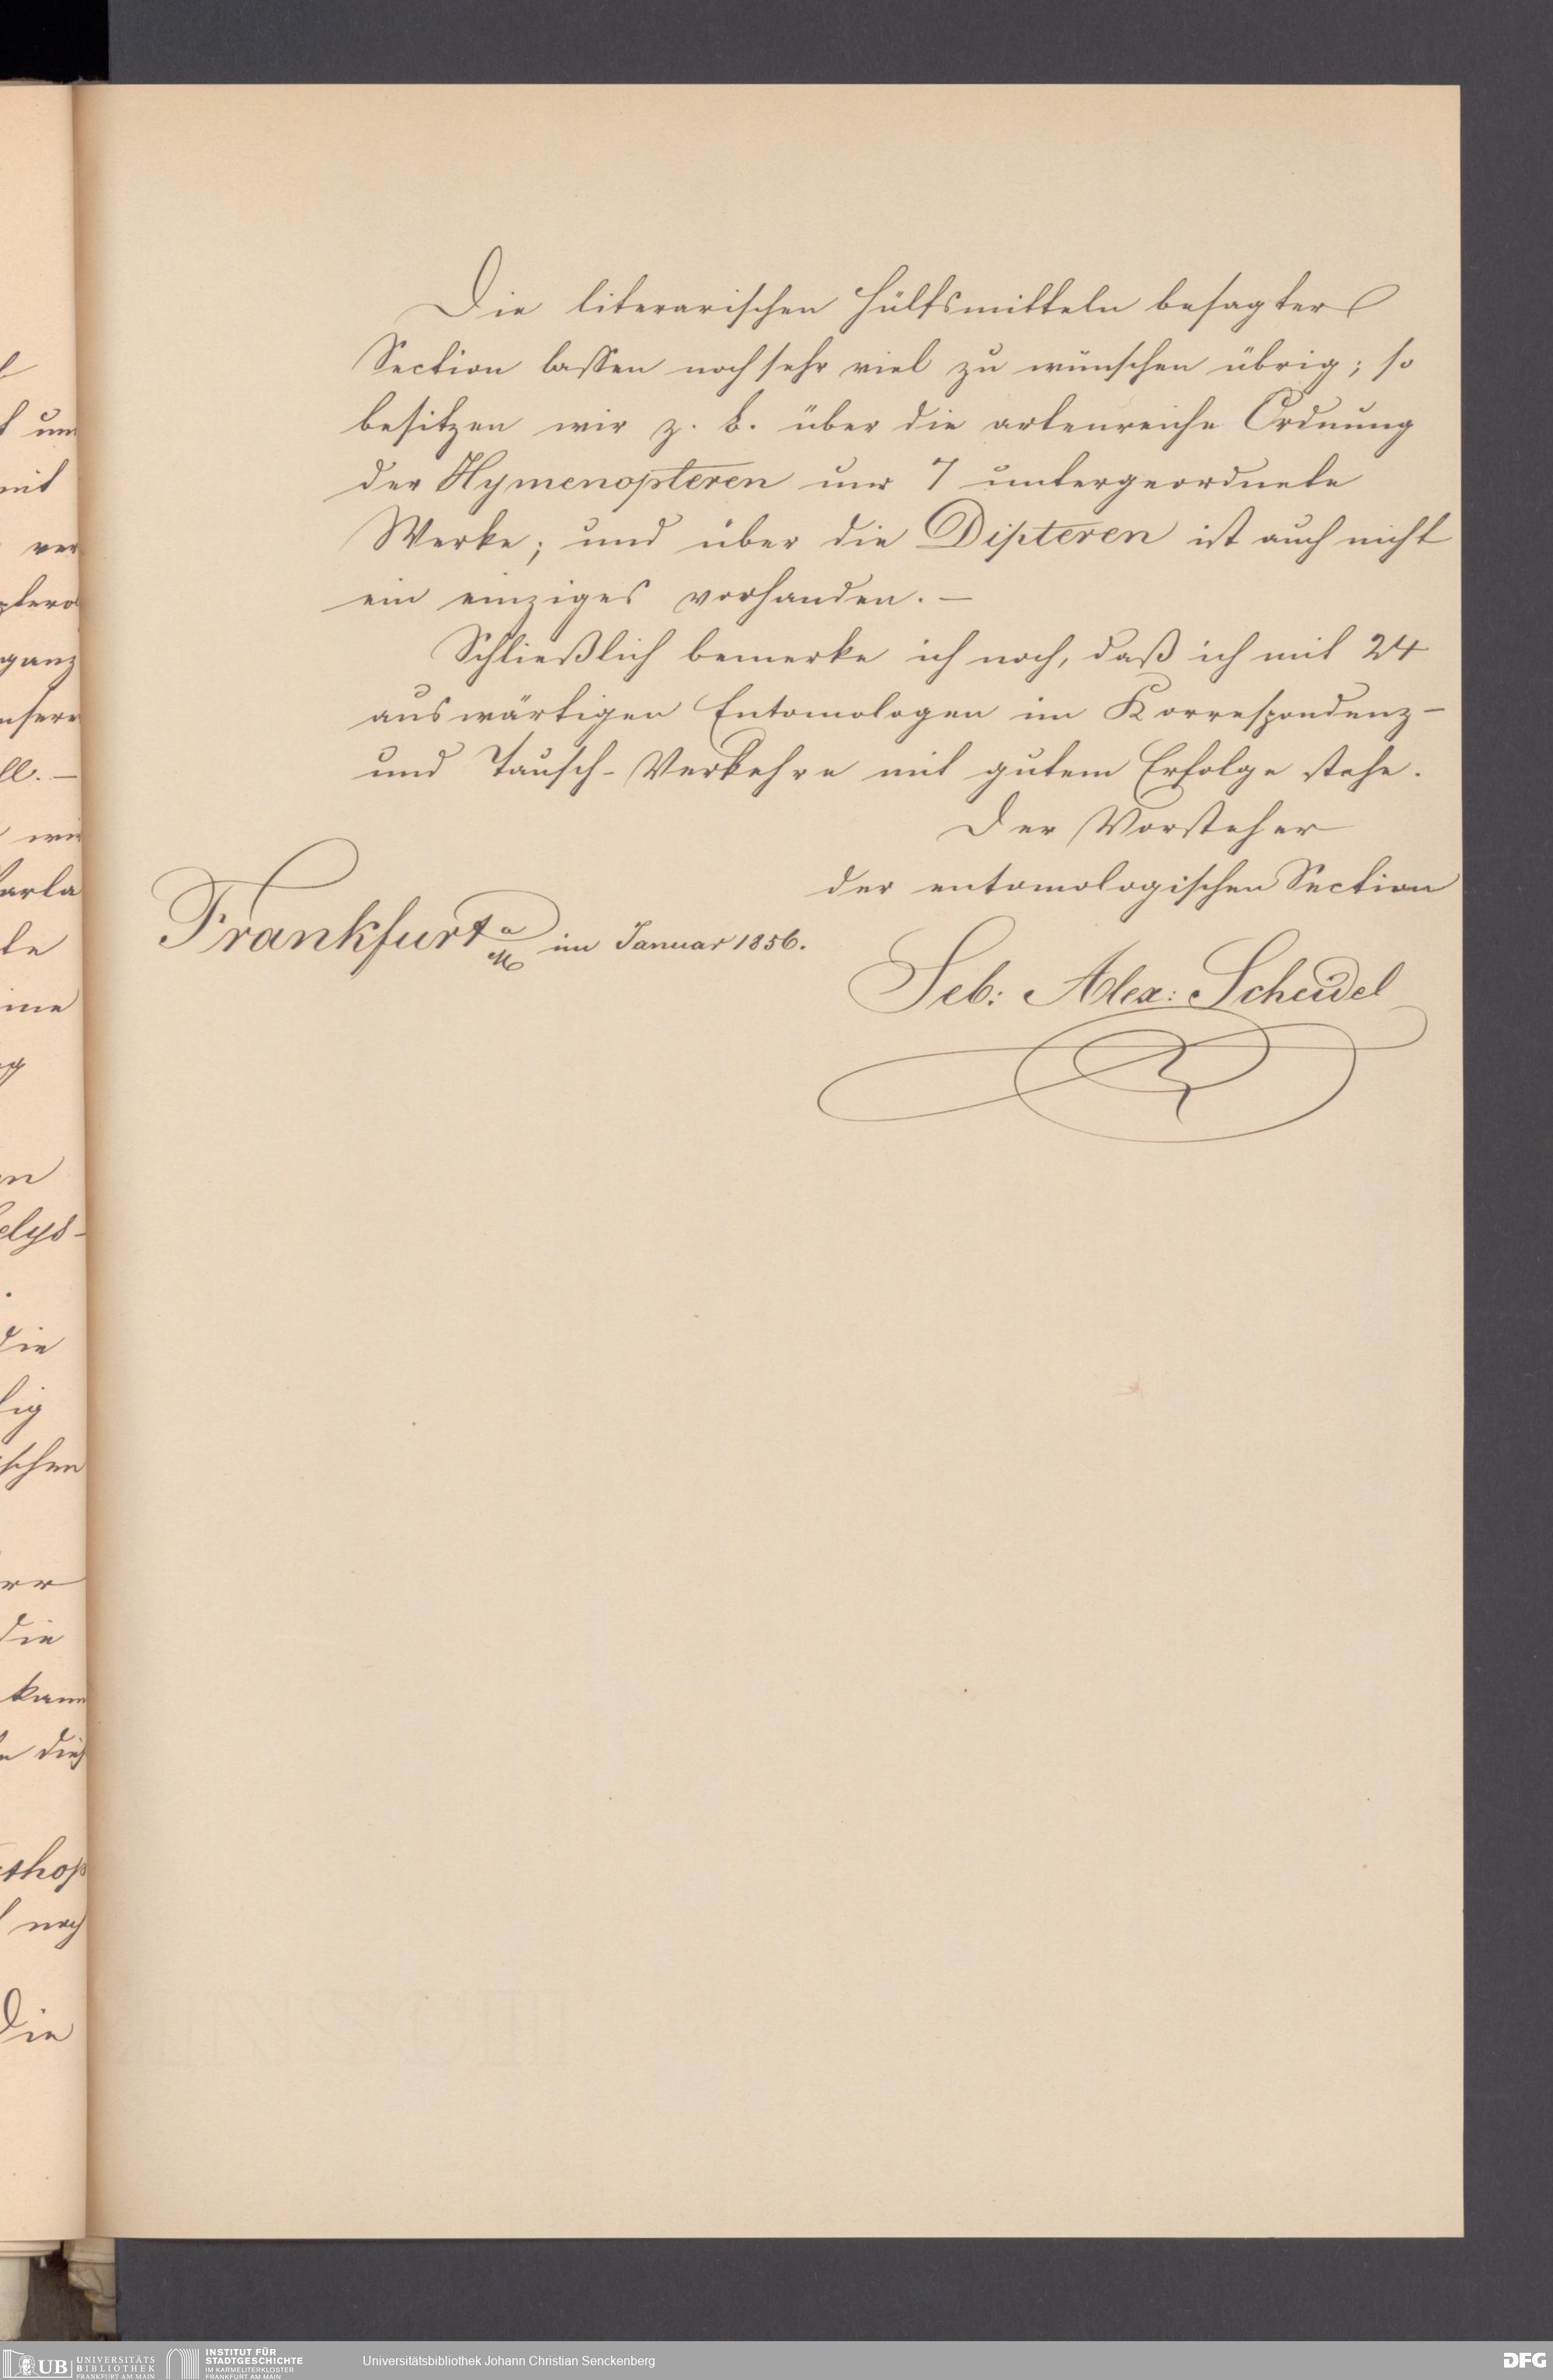 Die literarischen Hülfsmitteln besagter
Section lassen noch sehr viel zu wünschen übrig; so
besitzen wir z. B. über die artenreiche Ordnung
der Hymenopteren nur 7 untergeordnete
Werke; und über die Dipteren ist auch nicht
ein einziges vorhanden. —
Schließlich bemerke ich noch, daß ich mit 24
auswärtigen Entomologen im Korrespondenz-
und Tausch-Verkehre mit gutem Erfolge stehe.
Der Vorsteher
der entomologischen Section
Frankfurt a/M im Januar 1856.
Seb: Alex: Scheidel
UB UNIVERSITÄTS
BIBLIOTHEK
FRANKFURT AM MAIN
INSTITUT FÜR
STADTGESCHICHTE
IM KARMELITERKLOSTER
FRANKFURT AM MAIN
Universitätsbibliothek Johann Christian Senckenberg
DFG